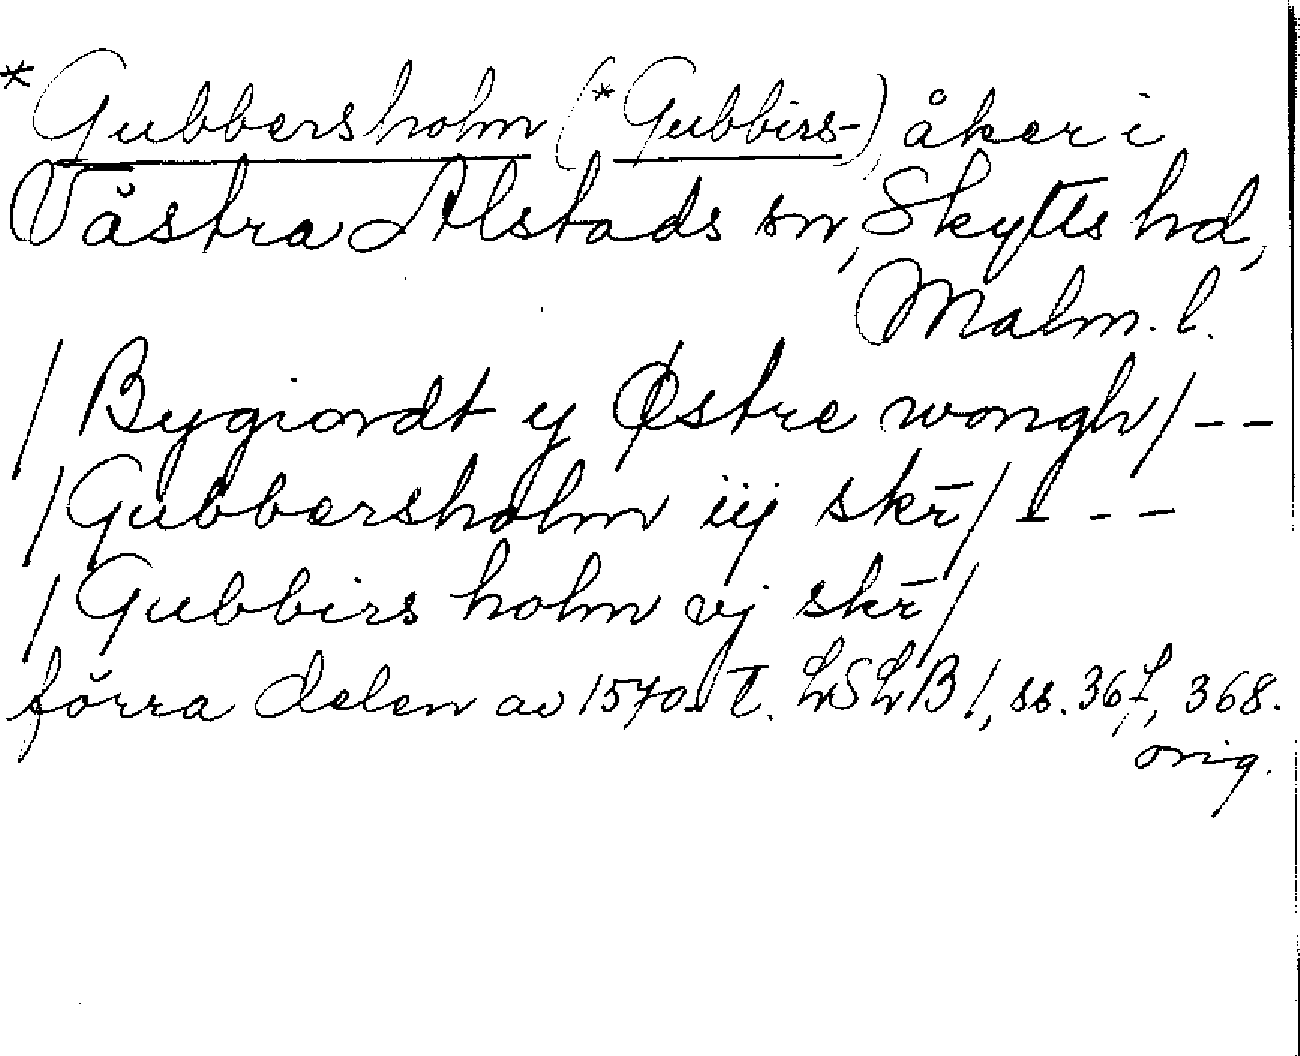 *Gubbersholm (*Gubbirs-) åker i
Västra Alstads sn, Skytts hd,
Malm. l.
/ Bygiordt y Østre wongh / --
/ Gubbersholm iij skr̄ / ---
/ Gubbirs holm vj skr̄ /
förra delen av 1570-t. LSLB 1, ss. 36f, 368.
orig.